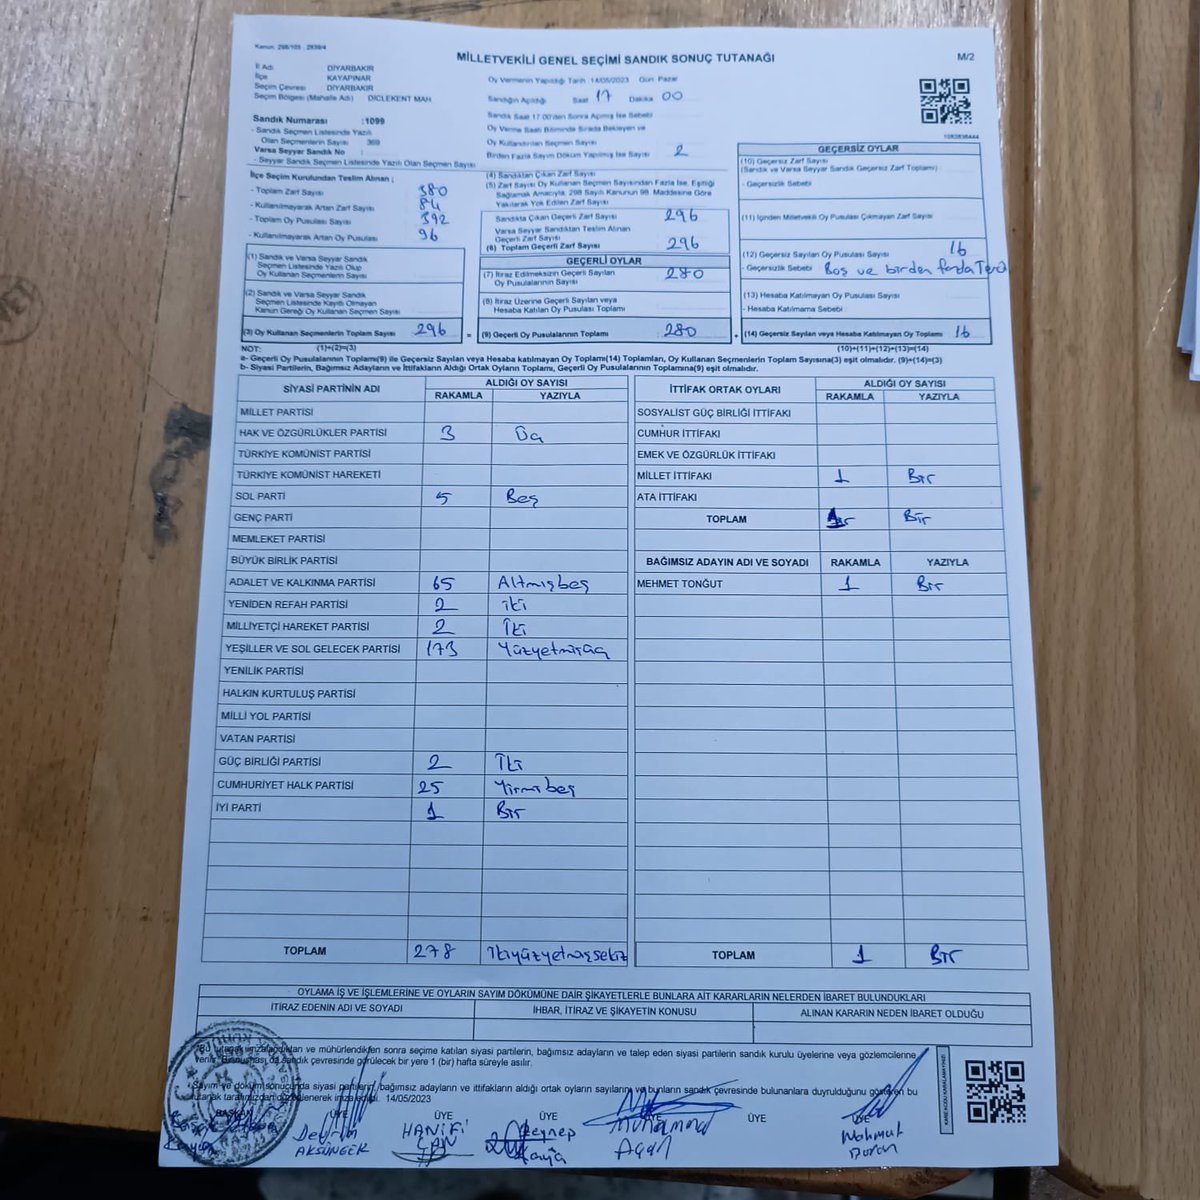 Kanun: 298/105 , 2839/4
MİLLETVEKİLİ GENEL SEÇİMİ SANDIK SONUÇ TUTANAĞI
M/2
İl Adı : DİYARBAKIR
İlçe : KAYAPINAR
Seçim Çevresi : DİYARBAKIR
Seçim Bölgesi (Mahalle Adı) : DİCLEKENT MAH
Sandık Numarası :1099
- Sandık Seçmen Listesinde Yazılı
Olan Seçmenlerin Sayısı : 369
Varsa Seyyar Sandık No :
- Seyyar Sandık Seçmen Listesinde Yazılı Olan Seçmen Sayısı
Oy Vermenin Yapıldığı Tarih :14/05/2023 Gün: Pazar
Sandığın Açıldığı Saat 17 Dakika 00
Sandık Saat 17:00'den Sonra Açılmış İse Sebebi
Oy Verme Saati Bitiminde Sırada Bekleyen ve
Oy Kullandırılan Seçmen Sayısı
Birden Fazla Sayım Döküm Yapılmış İse Sayısı 2
İlçe Seçim Kurulundan Teslim Alınan ;
- Toplam Zarf Sayısı 380
- Kullanılmayarak Artan Zarf Sayısı 84
- Toplam Oy Pusulası Sayısı 392
- Kullanılmayarak Artan Oy Pusulası 96
(1) Sandık ve Varsa Seyyar Sandık
Seçmen Listesinde Yazılı Olup
Oy Kullanan Seçmenlerin Sayısı
(2) Sandık ve Varsa Seyyar Sandık
Seçmen Listesinde Kayıtlı Olmayan
Kanun Gereği Oy Kullanan Seçmen Sayısı
(3) Oy Kullanan Seçmenlerin Toplam Sayısı 296
(4) Sandıktan Çıkan Zarf Sayısı
(5) Zarf Sayısı Oy Kullanan Seçmen Sayısından Fazla İse, Eşitliği
Sağlamak Amacıyla, 298 Sayılı Kanunun 98. Maddesine Göre
Yakılarak Yok Edilen Zarf Sayısı
Sandıkta Çıkan Geçerli Zarf Sayısı 296
Varsa Seyyar Sandıktan Teslim Alınan
Geçerli Zarf Sayısı
(6) Toplam Geçerli Zarf Sayısı 296
GEÇERLİ OYLAR
(7) İtiraz Edilmeksizin Geçerli Sayılan
Oy Pusulalarının Sayısı 280
(8) İtiraz Üzerine Geçerli Sayılan veya
Hesaba Katılan Oy Pusulası Toplamı
= (9) Geçerli Oy Pusulalarının Toplamı 280
GEÇERSİZ OYLAR
(10) Geçersiz Zarf Sayısı
(Sandık ve Varsa Seyyar Sandık Geçersiz Zarf Toplamı)
- Geçersizlik Sebebi
(11) İçinden Milletvekili Oy Pusulası Çıkmayan Zarf Sayısı
(12) Geçersiz Sayılan Oy Pusulası Sayısı 16
- Geçersizlik Sebebi Boş ve birden fazla
(13) Hesaba Katılmayan Oy Pusulası Sayısı
- Hesaba Katılmama Sebebi
+ (14) Geçersiz Sayılan veya Hesaba Katılmayan Oy Toplamı 16
NOT: (1)+(2)=(3) (10)+(11)+(12)+(13)=(14)
a- Geçerli Oy Pusulalarının Toplamı(9) ile Geçersiz Sayılan veya Hesaba katılmayan Oy Toplamı(14) Toplamları, Oy Kullanan Seçmenlerin Toplam Sayısına(3) eşit olmalıdır. (9)+(14)=(3)
b- Siyasi Partilerin, Bağımsız Adayların ve İttifakların Aldığı Ortak Oyların Toplamı, Geçerli Oy Pusulalarının Toplamına(9) eşit olmalıdır.
SİYASİ PARTİNİN ADI ALDIĞI OY SAYISI
RAKAMLA YAZIYLA
MİLLET PARTİSİ
HAK VE ÖZGÜRLÜKLER PARTİSİ 3 Üç
TÜRKİYE KOMÜNİST PARTİSİ
TÜRKİYE KOMÜNİST HAREKETİ
SOL PARTİ 5 Beş
GENÇ PARTİ
MEMLEKET PARTİSİ
BÜYÜK BİRLİK PARTİSİ
ADALET VE KALKINMA PARTİSİ 65 Altmışbeş
YENİDEN REFAH PARTİSİ 2 iki
MİLLİYETÇİ HAREKET PARTİSİ 2 İki
YEŞİLLER VE SOL GELECEK PARTİSİ 173 Yüzyetmişüç
YENİLİK PARTİSİ
HALKIN KURTULUŞ PARTİSİ
MİLLİ YOL PARTİSİ
VATAN PARTİSİ
GÜÇ BİRLİĞİ PARTİSİ 2 İki
CUMHURİYET HALK PARTİSİ 25 Yirmibeş
İYİ PARTİ 1 Bir
TOPLAM 278 İkiyüzyetmişsekiz
İTTİFAK ORTAK OYLARI ALDIĞI OY SAYISI
RAKAMLA YAZIYLA
SOSYALİST GÜÇ BİRLİĞİ İTTİFAKI
CUMHUR İTTİFAKI
EMEK VE ÖZGÜRLÜK İTTİFAKI
MİLLET İTTİFAKI 1 Bir
ATA İTTİFAKI
TOPLAM 1 Bir
BAĞIMSIZ ADAYIN ADI VE SOYADI RAKAMLA YAZIYLA
MEHMET TONĞUT 1 Bir
TOPLAM 1 Bir
OYLAMA İŞ VE İŞLEMLERİNE VE OYLARIN SAYIM DÖKÜMÜNE DAİR ŞİKAYETLERLE BUNLARA AİT KARARLARIN NELERDEN İBARET BULUNDUKLARI
İTİRAZ EDENİN ADI VE SOYADI İHBAR, İTİRAZ VE ŞİKAYETİN KONUSU ALINAN KARARIN NEDEN İBARET OLDUĞU
*Bu tutanak imzalandıktan ve mühürlendikten sonra seçime katılan siyasi partilerin, bağımsız adayların ve talep eden siyasi partilerin sandık kurulu üyelerine veya gözlemcilerine
verilir. Bir nüshası da sandık çevresinde görülecek bir yere 1 (bir) hafta süreyle asılır.
- Sayım ve döküm sonucunda siyasi partilerin, bağımsız adayların ve ittifakların aldığı ortak oyların sayılarını ve bunların sandık çevresinde bulunanlara duyrulduğunu gösteren bu
tutanak tarafımızdan düzenlenerek imza edildi. 14/05/2023
BAŞKAN ÜYE ÜYE ÜYE ÜYE ÜYE
Devrim AKSÜNGER
HANİFİ CAN
Zeynep Kaya
Muhammed
Mahmut Duran